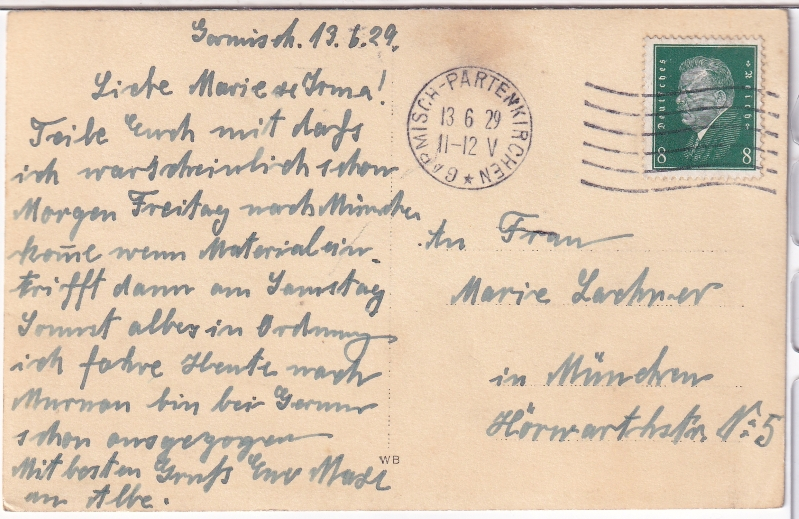 Garmisch. 13.6.29.
Liebe Marie & Irma!
Teibe Euch mit dass
ich warscheinlich schon
Morgen Freitag nach München
kom̄e wenn Material ein-
trifft dann am Samstag
Sonnst alles in Ordnung
ich fahre Heute nach
Murnau bin bei
schon ausgezogen
Mit besten Gruß Euer Maxl
an Albe.
GARMISCH-PARTENKIRCHEN
13 6 29
11-12 V
Deutsches Reich
8 8
An Frau
Marie Lachner
in München
Hörwarthstr. № 5
WB